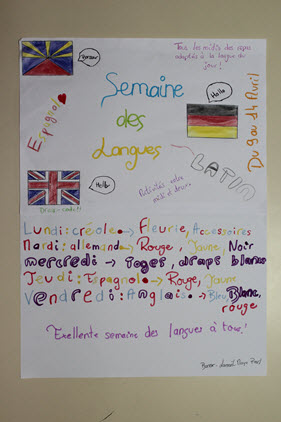 Bonzour
Tous les midis des repas
adaptés à la langue du
jour !
Semaine
des
Langues
Hallo
Espagnol
Du 9 au
Avril
LATIN
Hello
Activités entre
midi et deux
Lundi : créole → Fleurie, Accessoires
Mardi : allemand → Rouge, Jaune, Noir
mercredi → toges, draps blancs
Jeudi : Espagnol → Rouge, Jaune
Vendredi : Anglais. → Bleu, Blanc,
rouge
Exellente semaine des langues à tous !